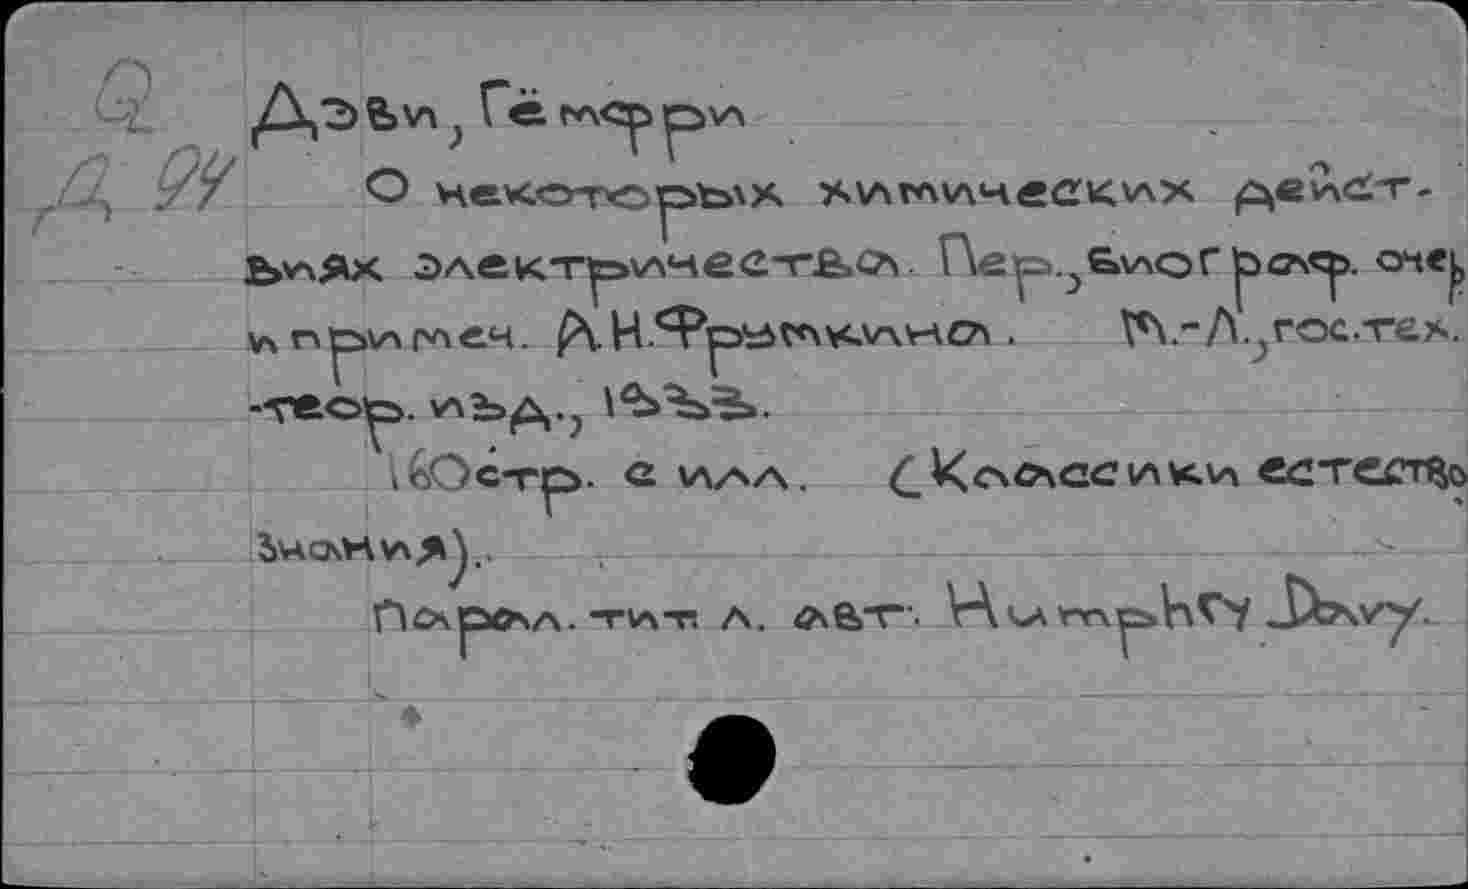 Q
Дэви, Гёмфри
Д 94
О некоторых химических дейст-
виях электричества. Пер., биограф. очер
и примеч. А.Н.Фрумкина. М.-Л., гос.тех.
-теор. изд., 1933.
160стр. с илл. (Классики естество
знания).
Парал. тит. л. авт. Humphry Davy.